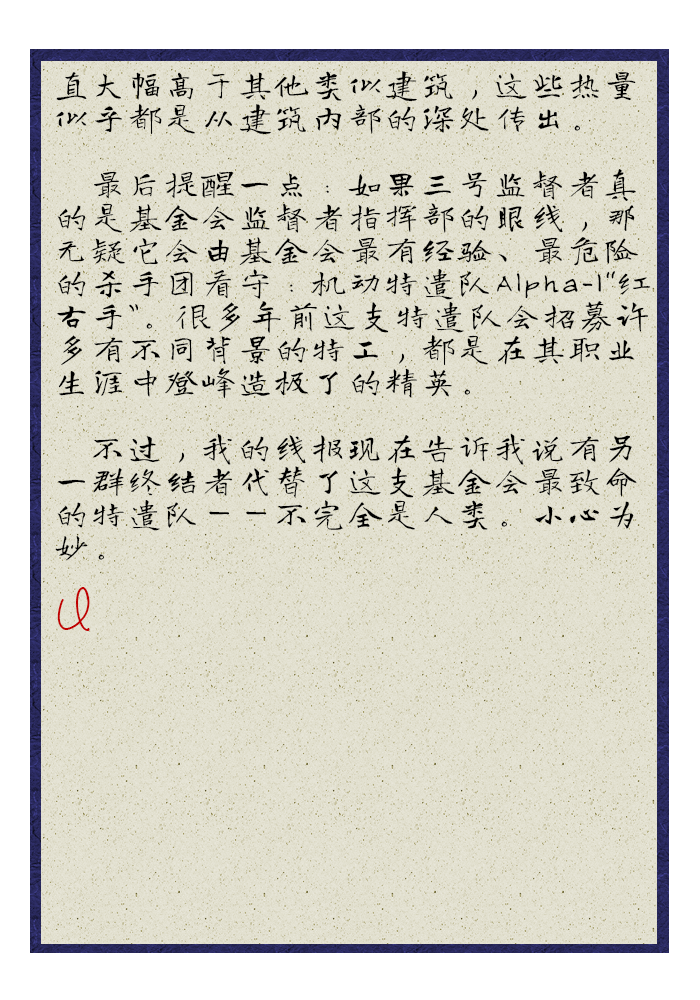 直大幅高于其他类似建筑，这些热量
似乎都是从建筑内部的深处传出。
最后提醒一点：如果三号监督者真
的是基金会监督者指挥部的眼线，那
无疑它会由基金会最有经验、最危险
的杀手团看守：机动特遣队Alpha-1“红
右手”。很多年前这支特遣队会招募许
多有不同背景的特工，都是在其职业
生涯中登峰造极了的精英。
不过，我的线报现在告诉我说有另
一群终结者代替了这支基金会最致命
的特遣队——不完全是人类。小心为
妙。
U